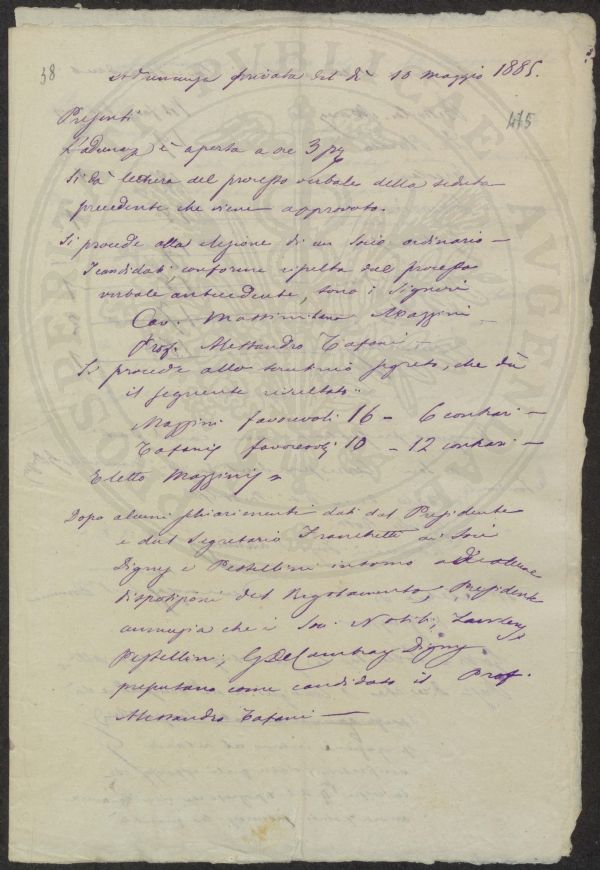 38
Adunanza privata del dì 10 Maggio 1885.
475
Presenti
L'adunanza è aperta a ore 3 p
Si dà lettura del processo verbale della seduta
precedente che viene approvato.
Si procede alla elezione di un Socio ordinario —
I candidati conforme risulta dal processo
verbale antecedente, sono i Signori
Cav. Massimiliano Mazzini —
Prof. Alessandro Tafani —
Si procede allo scrutinio segreto, che dà
il seguente risultato:
Mazzini favorevoli 16 — 6 contrari —
Tafani favorevoli 10 — 12 contrari —
Eletto Mazzini
Dopo alcuni schiarimenti dati dal Presidente
e dal Segretario Franchetti ai Soci
Digny e Pestellini intorno a alcune
disposizioni del Regolamento, Presidente
annunzia che i Soci
Pestellini, G De Cambray Digny
presentano come candidato il Prof.
Alessandro Tafani —
PVBLICAE
AVGENDAE
PROSPERITATI